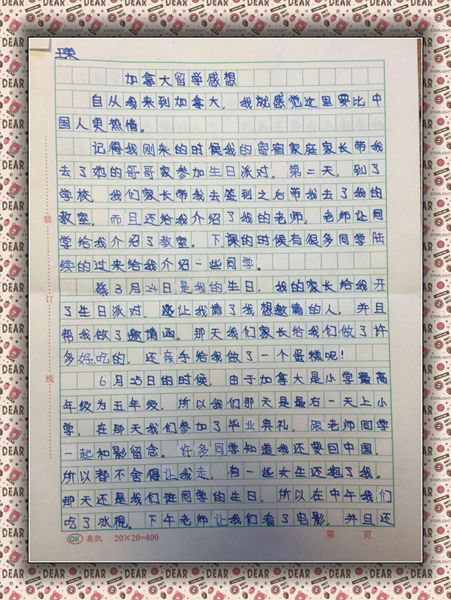 加拿大留学感想
自从我来到加拿大，我就感觉这里要比中
国人更热情。
记得我刚来的时候我的寄宿家庭家长带我
去了她的哥哥家参加生日派对。第二天，到了
学校，我们家长带我去签到之后带我去了我的
教室，而且还给我介绍了我的老师，老师让同
学给我介绍了教室。下课的时候有很多同学陆
续的过来给我介绍一些同学。
3月24日是我的生日，我的家长给我开
了生日派对，还让我请了我想邀请的人，并且
帮我做了邀请函。那天我们家长给我们做了许
多好吃的，还亲手给我做了一个蛋糕呢！
6月25日的时候，由于加拿大是小学最高
年级为五年级，所以我们那天是最后一天上小
学，在那天我们参加了毕业典礼，跟老师同学
一起和影留念。许多同学知道我还要回中国，
所以都不舍得让我走，有一些女生还抱了我。
那天还是我们班同学的生日，所以在中午我们
吃了冰棍。下午老师让我们看了电影，并且还
装
订
线
OK 奥凯 20×20=400 第 页
DEAR
STARLIGHT